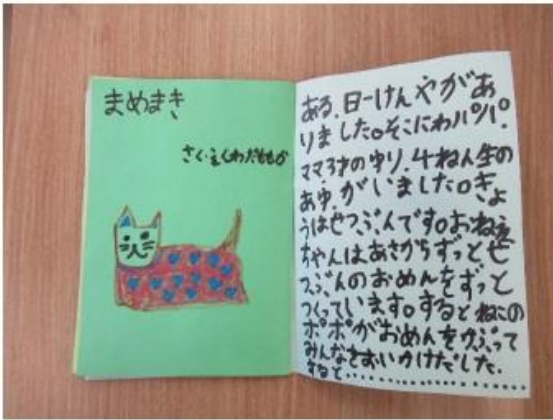 まめまき
さく・え くわだももか
ある、日一けんやがあ
りました。そこにわパパ、
ママ、3才のゆり、4ねん生の
あゆ、がいました。きょ
うはせつぶんです。おねえ
ちゃんはあさからずっとせ
つぶんのおめんをずっと
つくっています。するとねこの
ポポがおめんをかぶって
みんなをおいかけだした。
すると……………